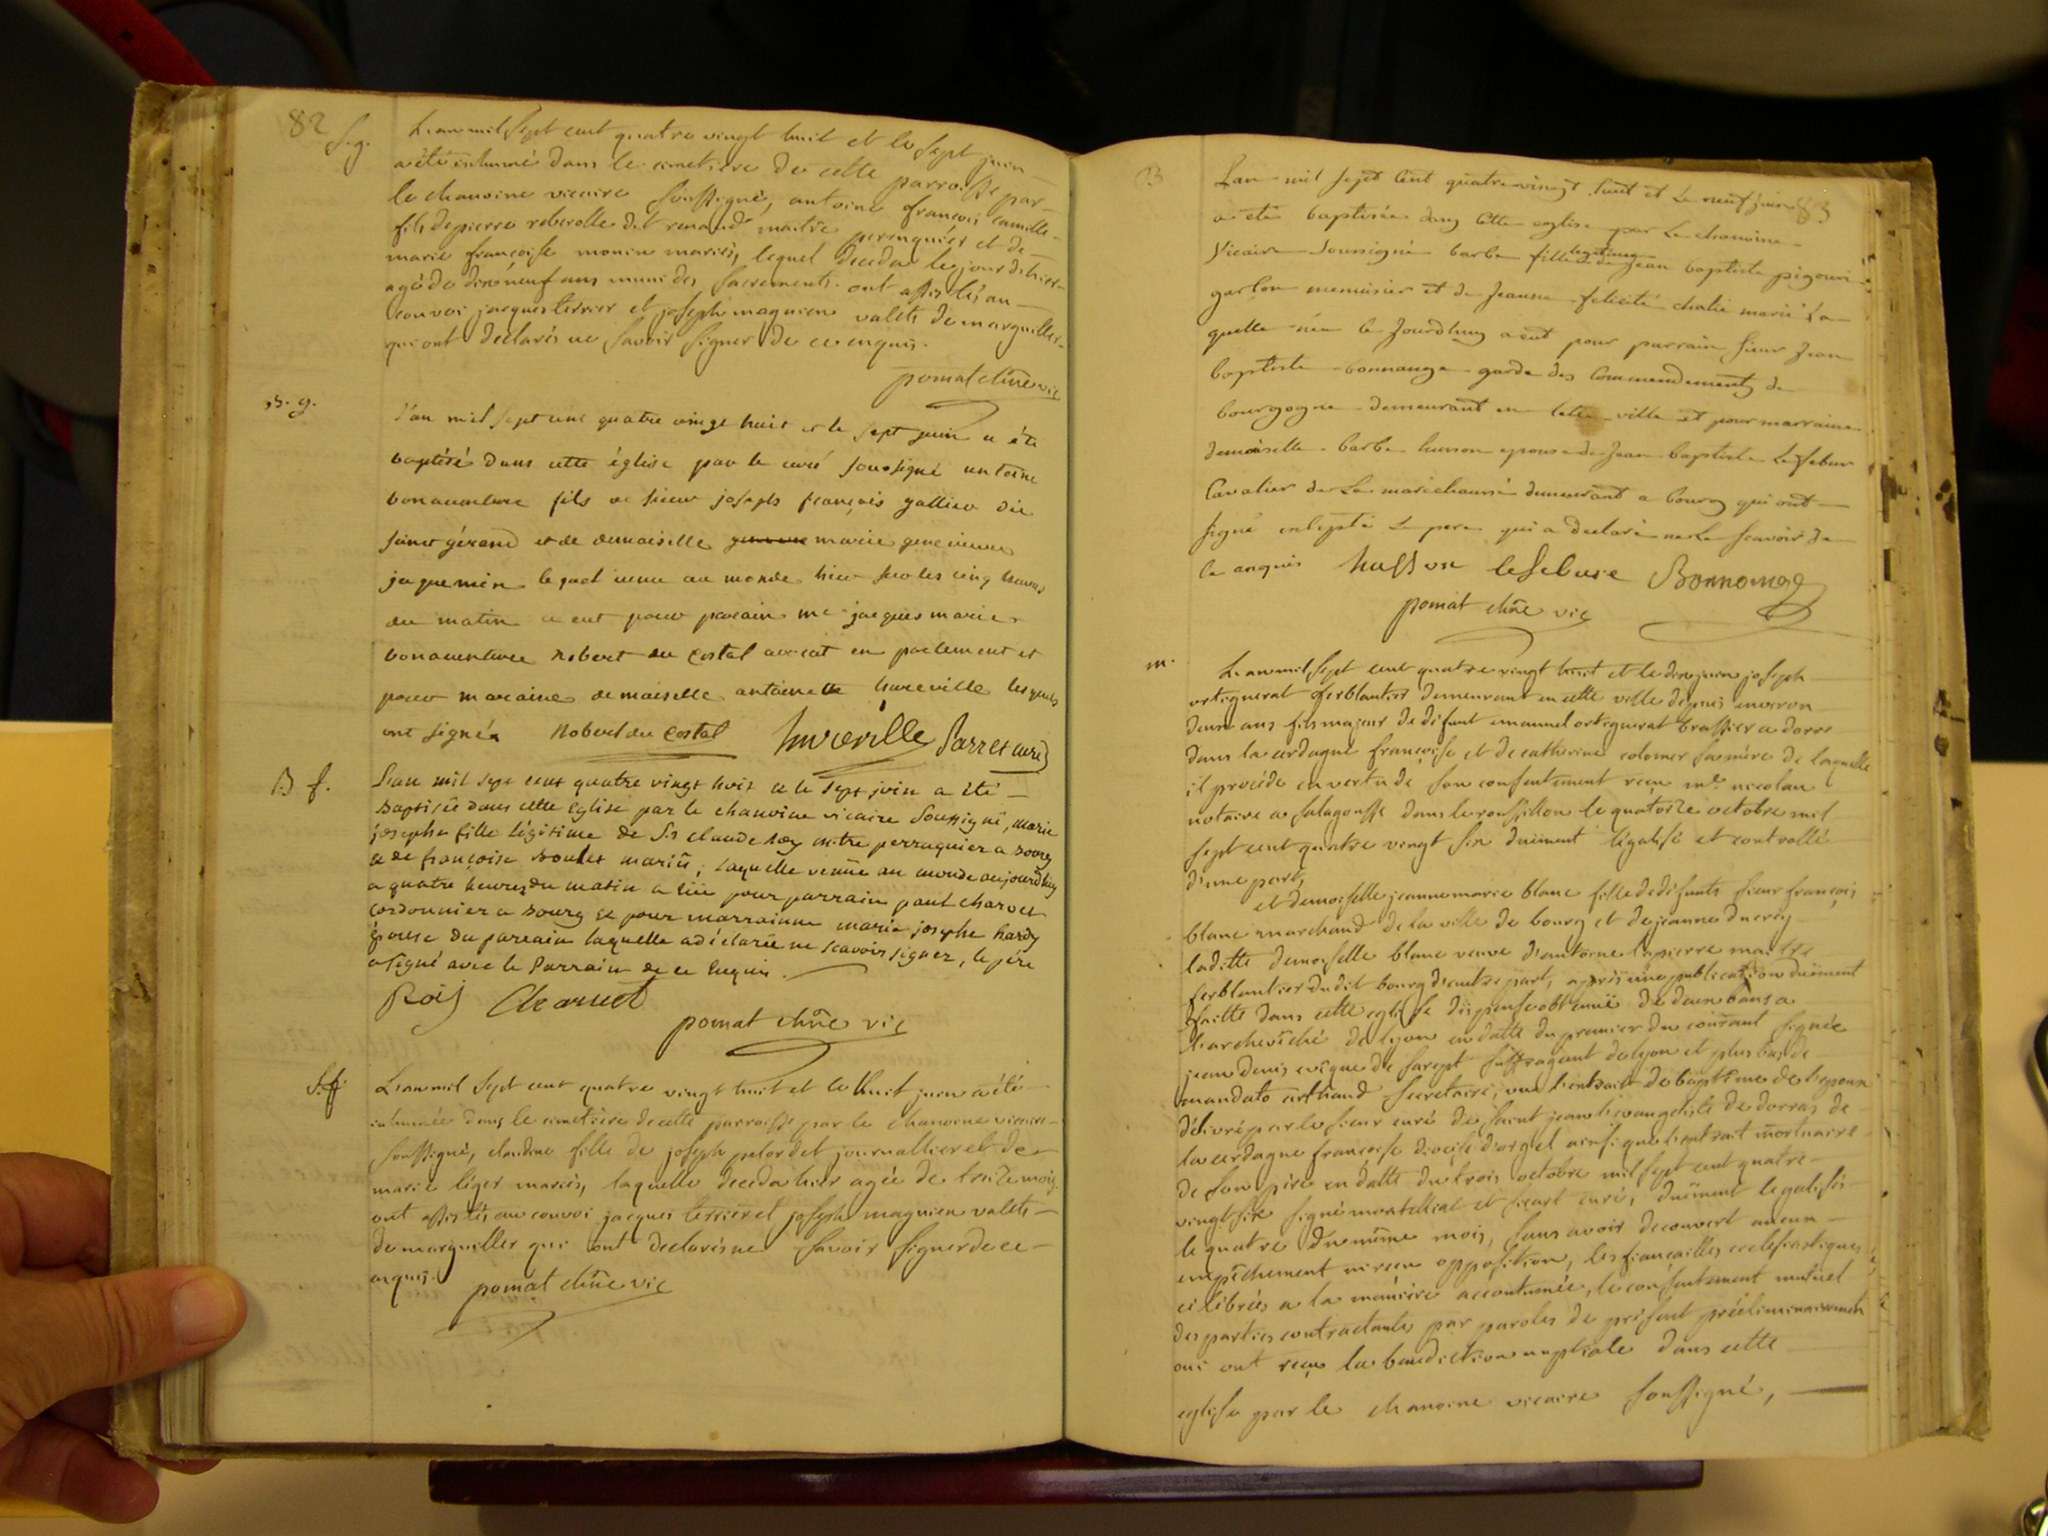 82
S. g.
L'an mil sept cent quatre vingt huit et le sept juin
a été inhumé dans le cimetiere de cette parroisse par
le chanoine vicaire soussigné, antoine françois camille
fils de pierre reberolle dit renaud maître perruquier et de
marie françoise monin mariés, lequel deceda le jour d'hier
agé de dixneuf ans muni des sacrements. ont assistés au
convoi jacques terrier et joseph magnien valets de marguiller
qui ont declarés ne savoir signer de ce enquis.
pomat chne vic
B. g.
L'an mil sept cent quatre vingt huit et le sept juin a été
baptisé dans cette église par le curé soussigné antoine
bonaventure fils de sieur joseph françois gallien dit
saint gérand et de demoiselle marie genevieve
jaquemin lequel venu au monde hier sur les cinq heures
du matin a eut pour parain me jacques marie
bonaventure Robert du Costal avocat en parlement et
pour maraine demoiselle antoinette hureville lesquels
ont signés Robert du Costal hureville Parret curé
B f.
L'an mil sept cent quatre vingt huit et le sept juin a été
Baptisée dans cette Eglise par le chanoine vicaire soussigné, marie
josephe fille légitime de Sr claude Roy mître perruquier a bourg
et de françoise Boulet mariés, laquelle venüe au monde aujourd'huy
a quatre heures du matin a eüe pour parrain paul charvet
cordonnier a bourg et pour marrainne marie josephe hardy
épouse du parrain laquelle a déclarée ne scavoir signer, le père
a signé avec le Parrain de ce Enquis.
Roij Charvet
pomat chne vic
S. f.
L'an mil sept cent quatre vingt huit et le huit juin a été
inhumée dans le cimetiere de cette parroisse par le chanoine vicaire
soussigné, claudine fille de joseph pelordet journallier et de
marie léger mariés, laquelle deceda hier agée de treize mois
ont assistés au convoi jacques terrier et joseph magnien valets
de marguiller qui ont declarés ne savoir signer de ce
enquis.
pomat chne vic
83
B
L'an mil sept cent quatre vingt huit et le neuf juin
a été baptisée dans cette eglise par le chanoine
Vicaire soussigné barbe fille legitime de jean baptiste
garçon menuisier et de jeanne félicité chalie marié la
quelle née le jourdhuy a eut pour parrain sieur jean
baptiste bonnange garde des Commendements de
bourgogne demeurant en cette ville et pour marraine
demoiselle barbe husson epouse de jean baptiste Lefebure
Cavalier de la maréchaussé demeurant a bourg qui ont
signé excepté le pere qui a declaré ne le scavoir de
ce enquis husson lefebure Bonnange
pomat chne vic
m.
L'an mil sept cent quatre vingt huit et le dix juin joseph
ortiguerat ferblantier demeurant en cette ville depuis environ
deux ans fils majeur de défunt emanuel ortiguerat brassier a dorres
dans la cerdagne françoise et de catherine colomer sa mère de laquelle
il procéde en vertu de son consentement recu me nicolau
notaire a salagousse dans le roussillon le quatorze octobre mil
sept cent quatre vingt six duëment légalisé et controllé
d'une part,
et demoiselle jeanne marie blanc fille de défunts sieur françois
blanc marchand de la ville de bourg et de jeanne ducrey
laditte demoiselle blanc veuve d'antoine lapierre maitre
ferblantier dudit bourg d'autre part, après une publication duëment
faitte dans cette eglise dispense obtenuë de deux bans a
l'archevêché de lyon en datte du premier du courant signée
jean denis evêque de sarept suffragant de lyon et plus bas de
mandato arthaud secretaire, vu l'extrait de baptême de l'epoux
délivré par le sieur curé de saint jean l'evangeliste de dorres de
la cerdagne francoise diocèse d'orgel ainsi que l'extrait mortuaire
de son père en datte du trois octobre mil sept cent quatre
vingt six signé et sicart curé, duëment legalisés
le quatre du même mois, sans avoir decouvert aucun
empêchement ni recu opposition, les fiançailles ecclesiastiques
celibrées a la manière accoutumée, le consentement mutuel
des parties contractantes par paroles de présent préliminairement
oui ont reçu la benediction nuptiale dans cette
eglise par le chanoine vicaire soussigné,